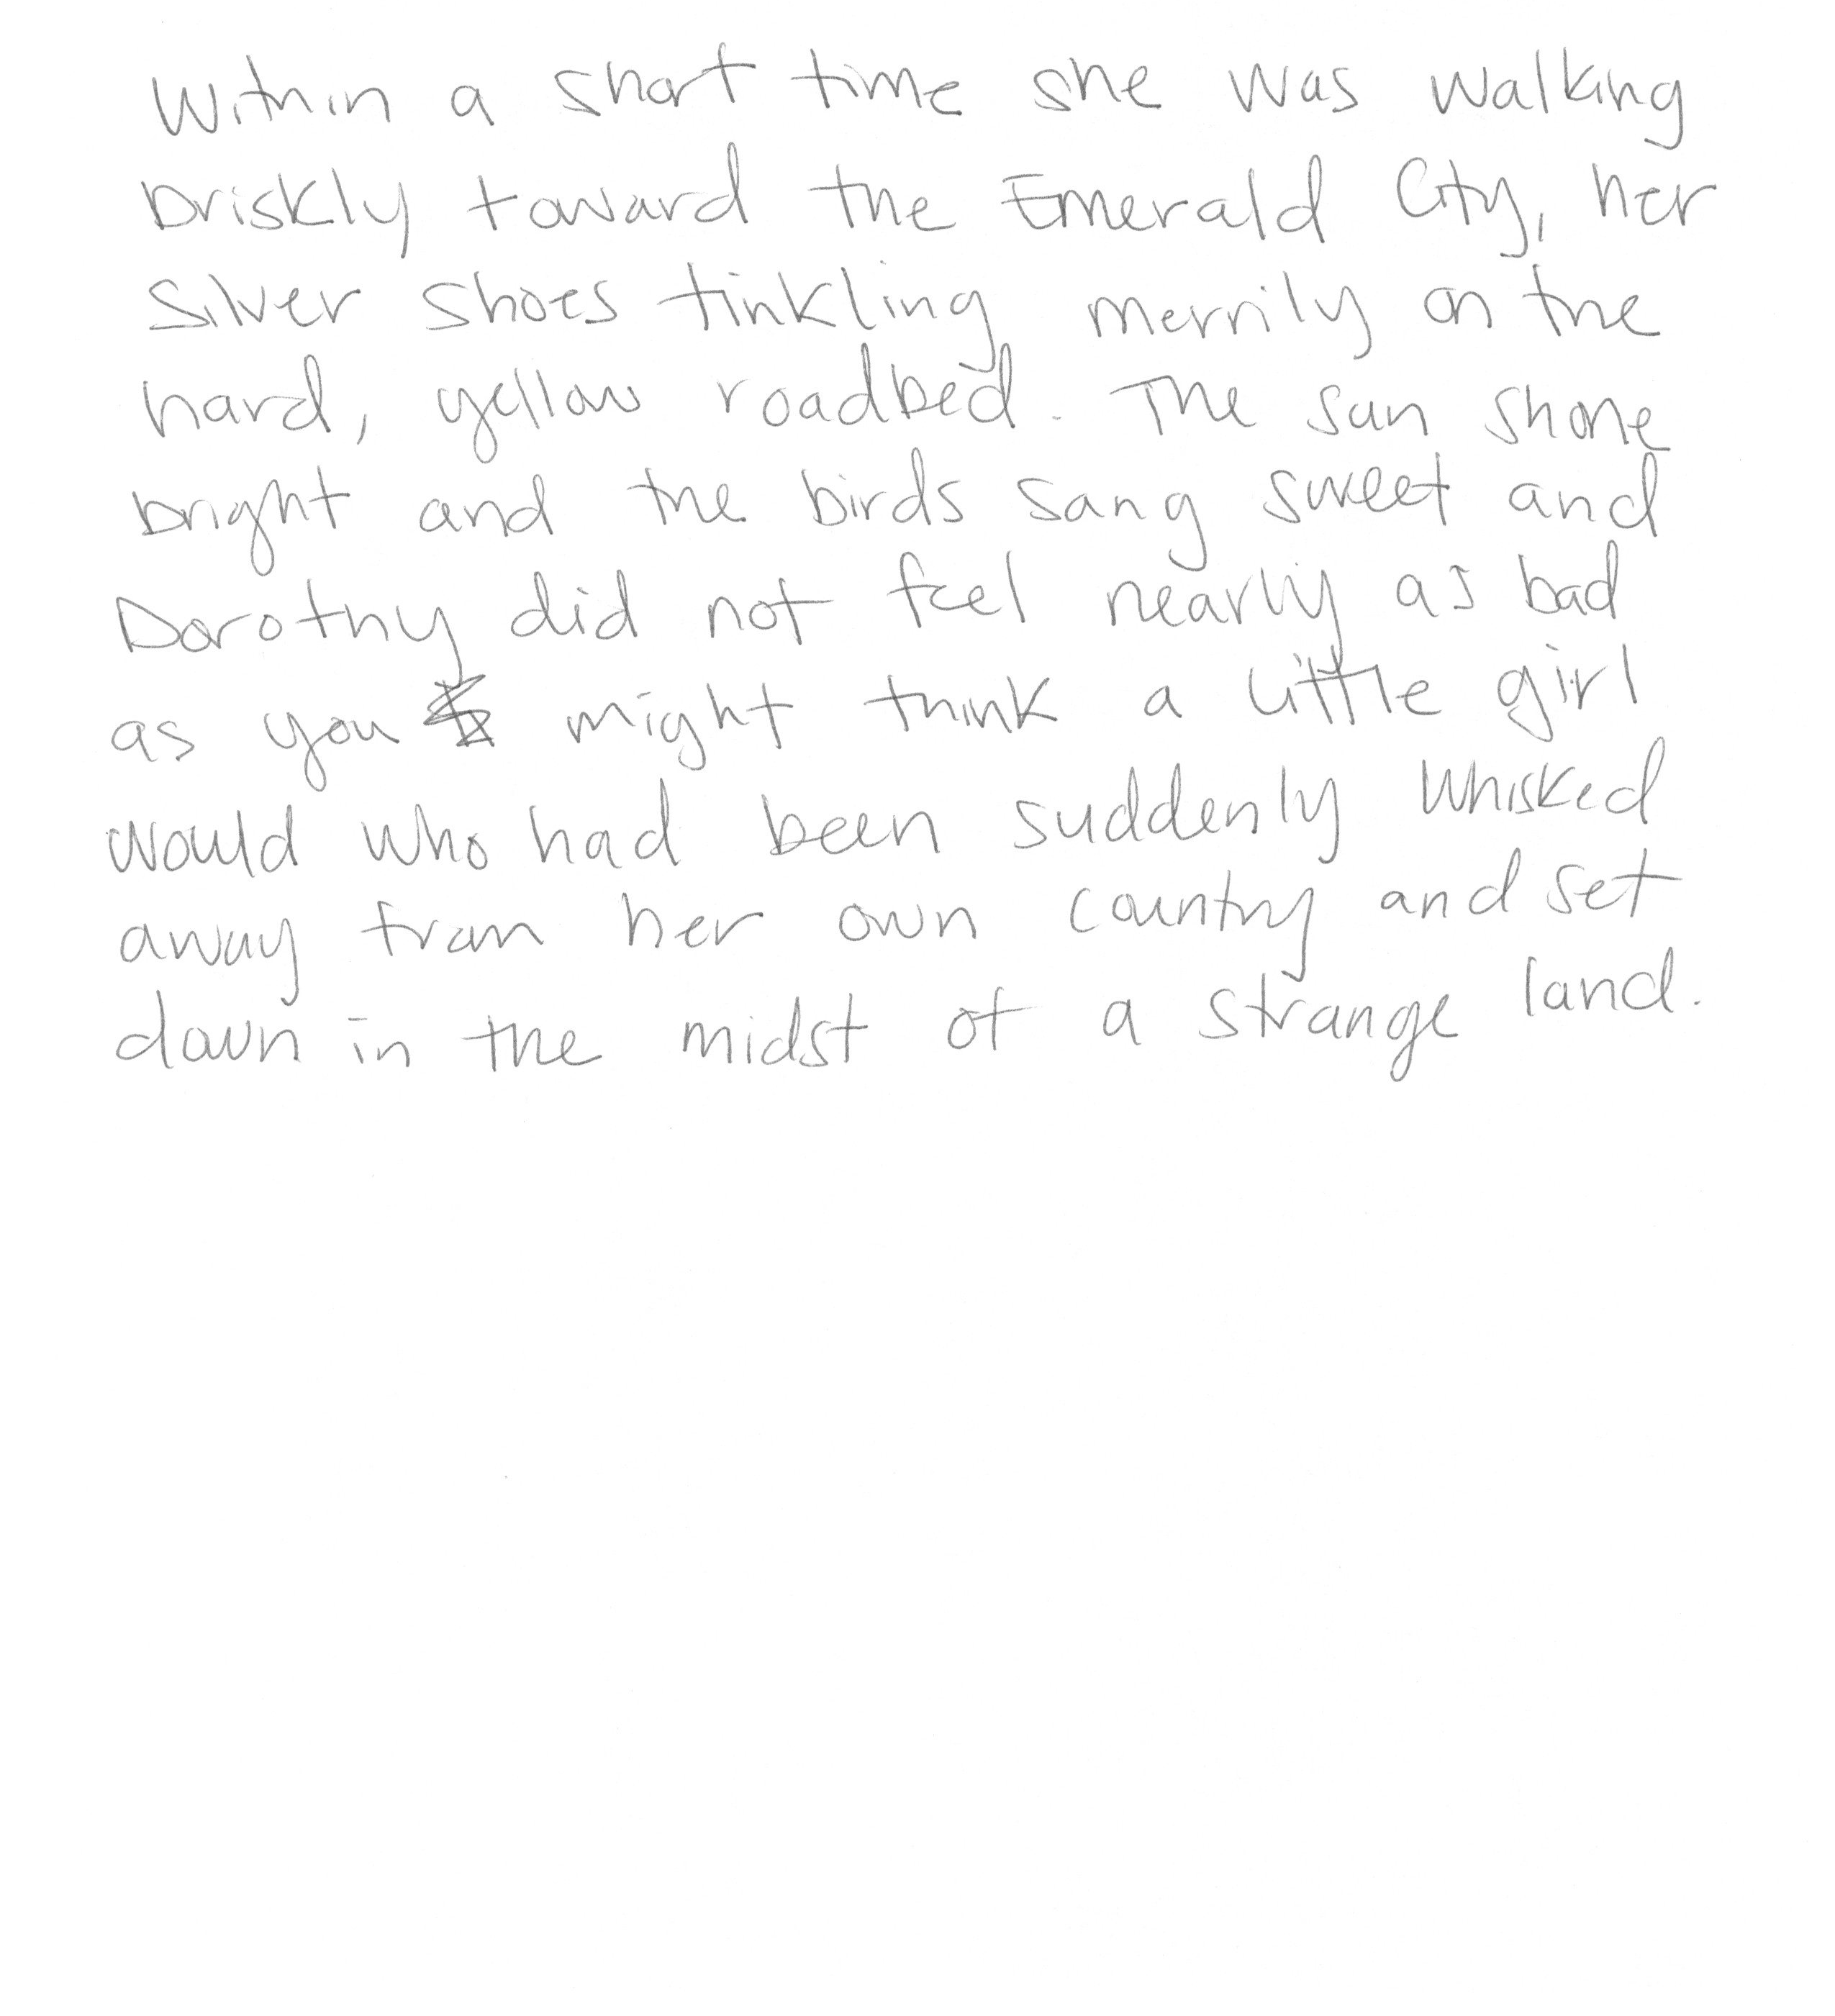 Within a short time she was walking
briskly toward the Emerald City, her
Silver Shoes tinkling merrily on the
hard, yellow roadbed. The sun shone
bright and the birds sang sweet and
Dorothy did not feel nearly as bad
as you might think a little girl
would who had been suddenly whisked
away from her own country and set
down in the midst of a strange land.